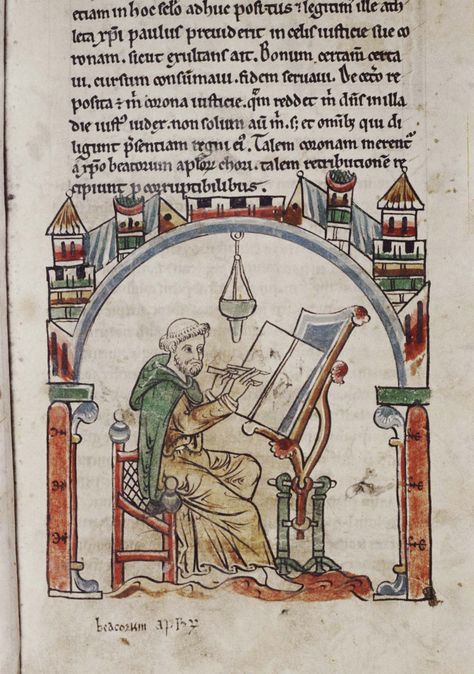 etiam in hoc sclo adhuc positus & legitim' ille ath
leta xp̄i paulus preuiderit in celis iusticie sue co
ronam. sicut exultans ait. Bonum certam̄ certa
ui. cursum consūmaui. fidem seruaui. De cet̄o re
posita ē m̄ corona iusticie. qm̄ reddet m̄ dn̄s in illa
die iust' iudex. non solum aū m̄. s; et omīb; qui di
ligunt p̄sentiam regni ei'. Talem coronam
a xp̄o beatorum ap̄lorꝝ chori. talem retributionē re
cipiunt p corruptibilibus.
beatorum